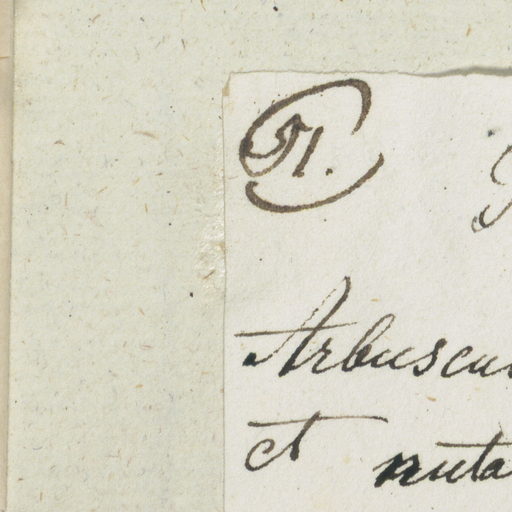 51.
Arbuscu
et nuta